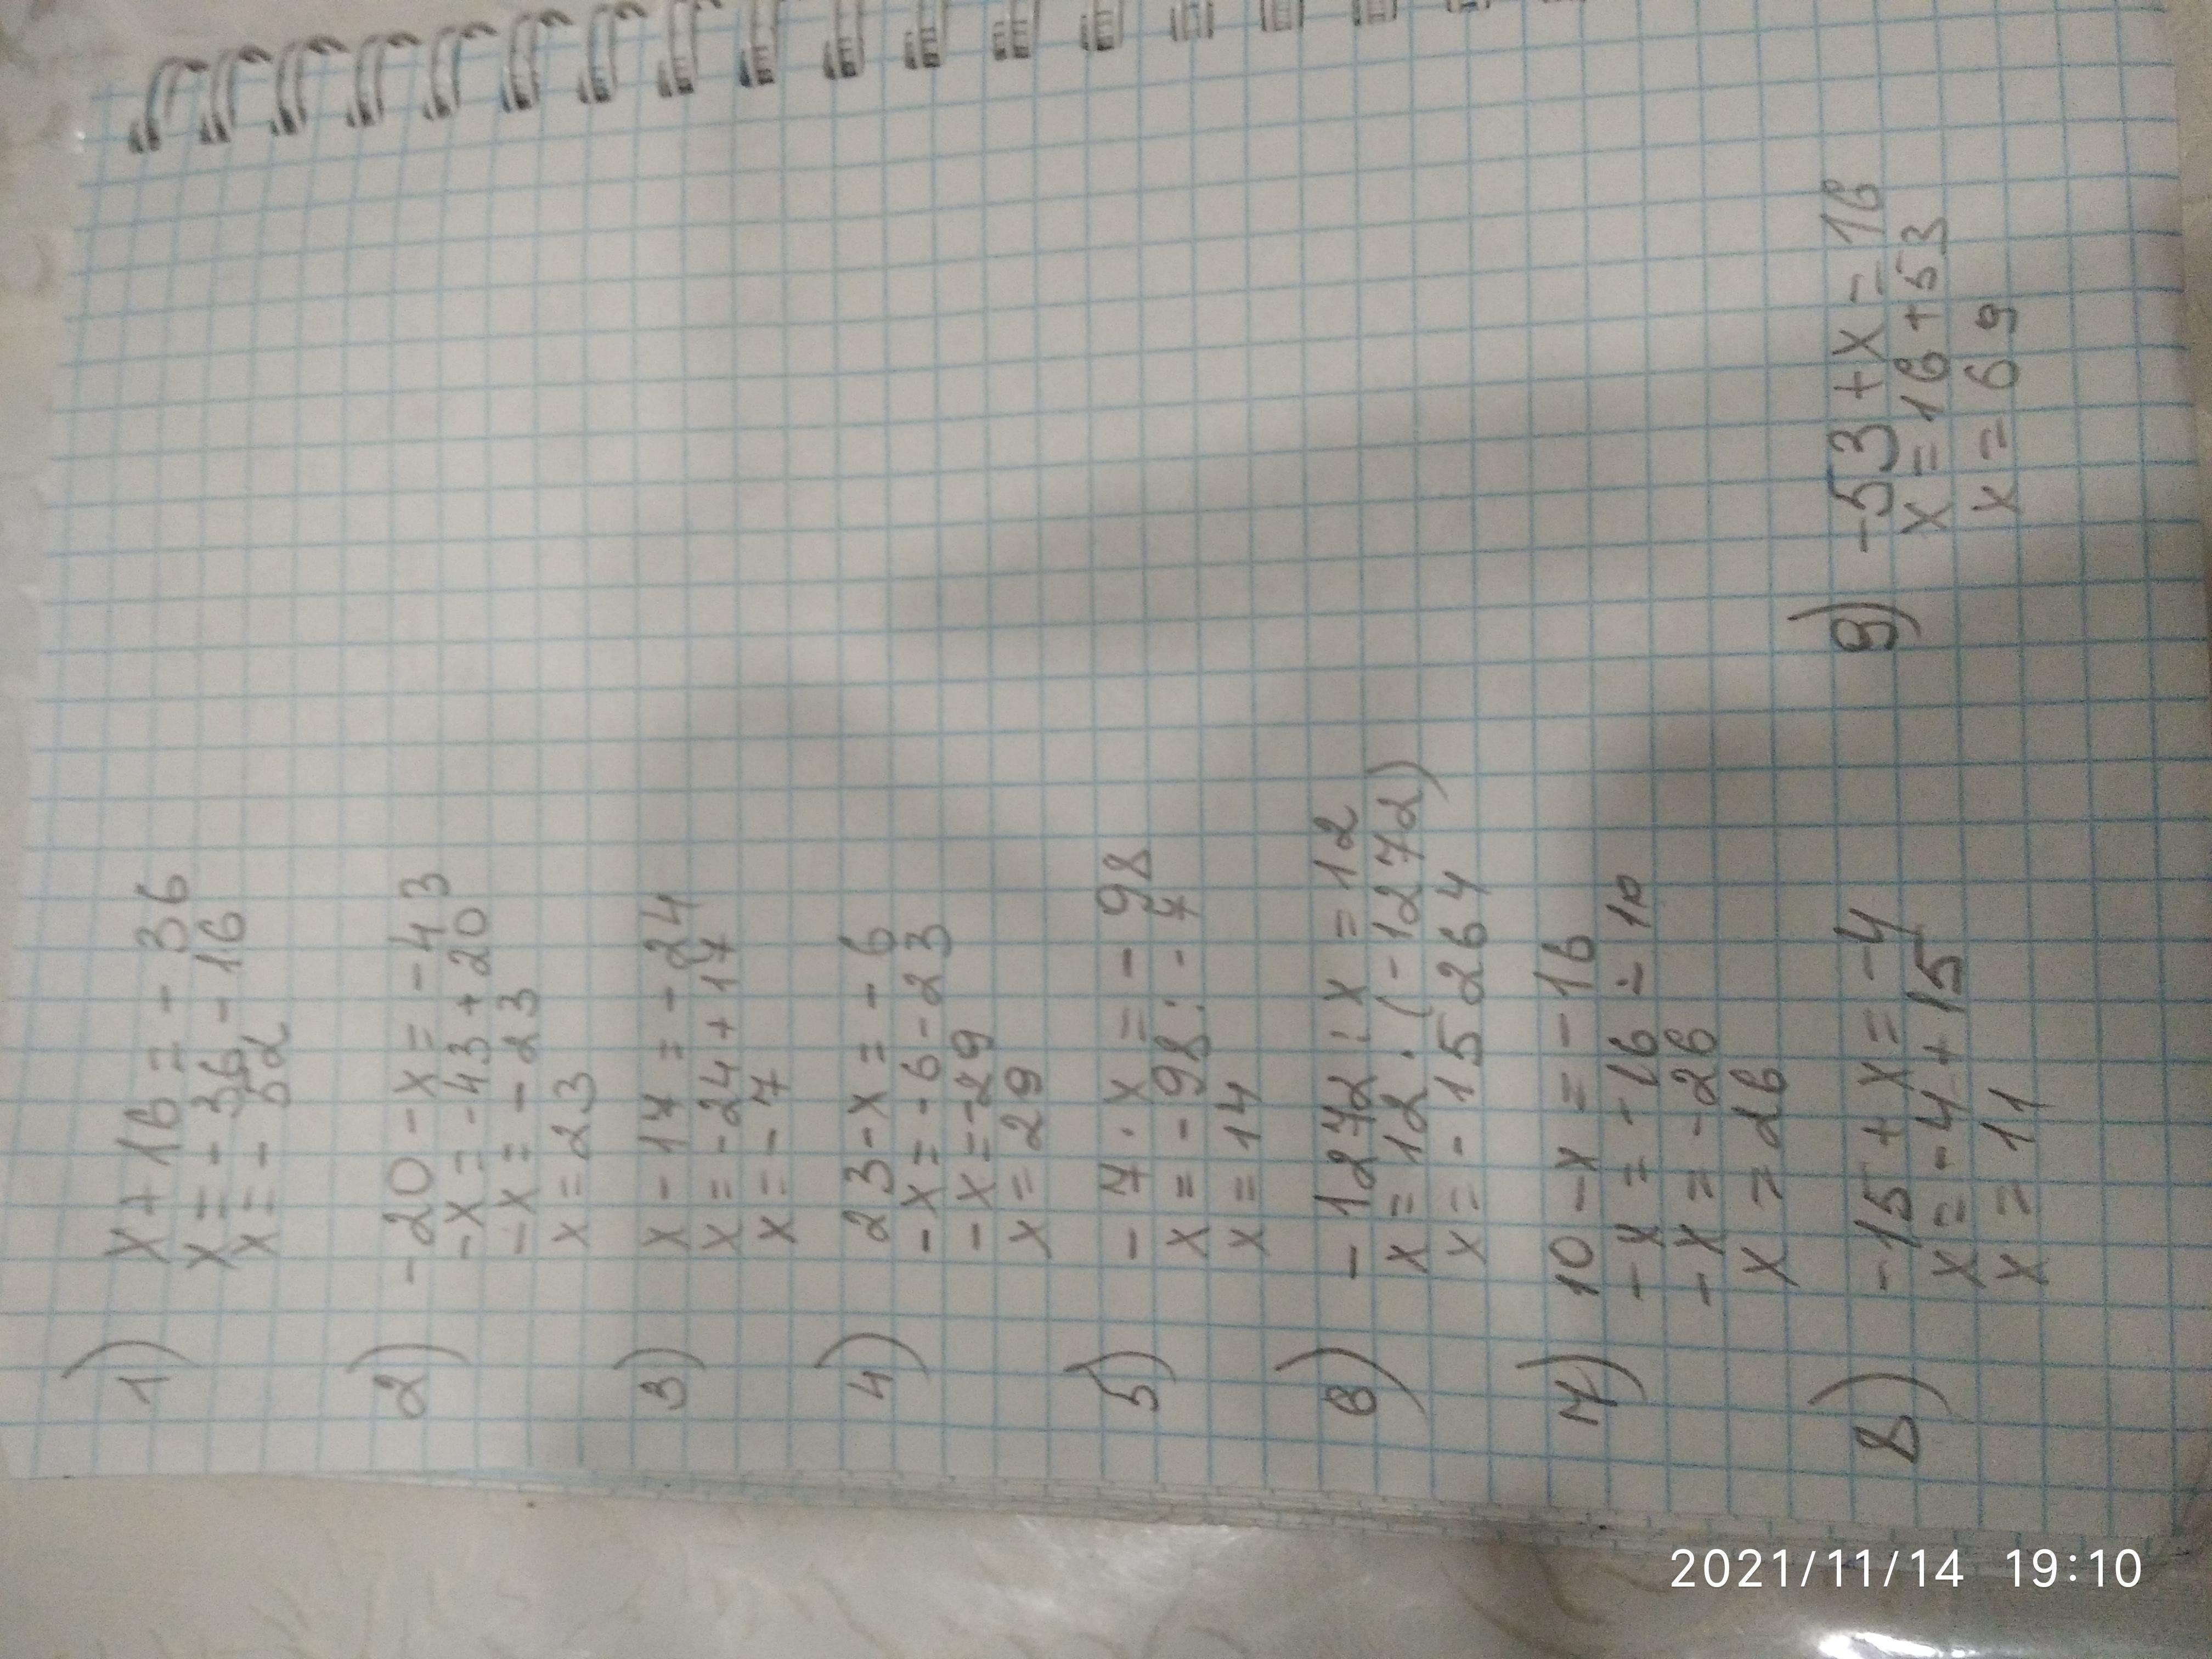 1) x + 16 = - 36
x = - 36 - 16
x = - 52
2) - 20 - x = - 43
- x = - 43 + 20
- x = - 23
x = 23
3) x - 17 = - 24
x = - 24 + 17
x = - 7
4) 23 - x = - 6
- x = - 6 - 23
- x = - 29
x = 29
5) - 7 · x = - 98
x = - 98 : - 7
x = 14
6) - 1272 : x = 12
x = 12 · (- 1272)
x = - 15264
7) 10 - x = - 16
- x = - 16 - 10
- x = - 26
x = 26
8) - 15 + x = - 4
x = - 4 + 15
x = 11
9) - 53 + x = 16
x = 16 + 53
x = 69
2021/11/14 19:10